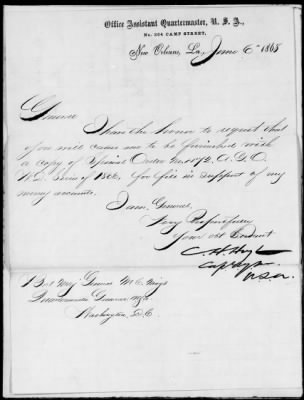 Office Assistant Quartermaster, U. S. A.,
No. 204 CAMP STREET,
New Orleans, La., June 6 1868
General
I have the honor to request that
you will cause me to be furnished with
a copy of Special Order No. A. G. O.
series of 186 for file in support of my
money accounts.
I am, General,
Very Respectfully
Your obt Servant
Capt
U.S.A.
Bvt Maj General M. C. Meigs
Quartermaster General
Washington, D. C.